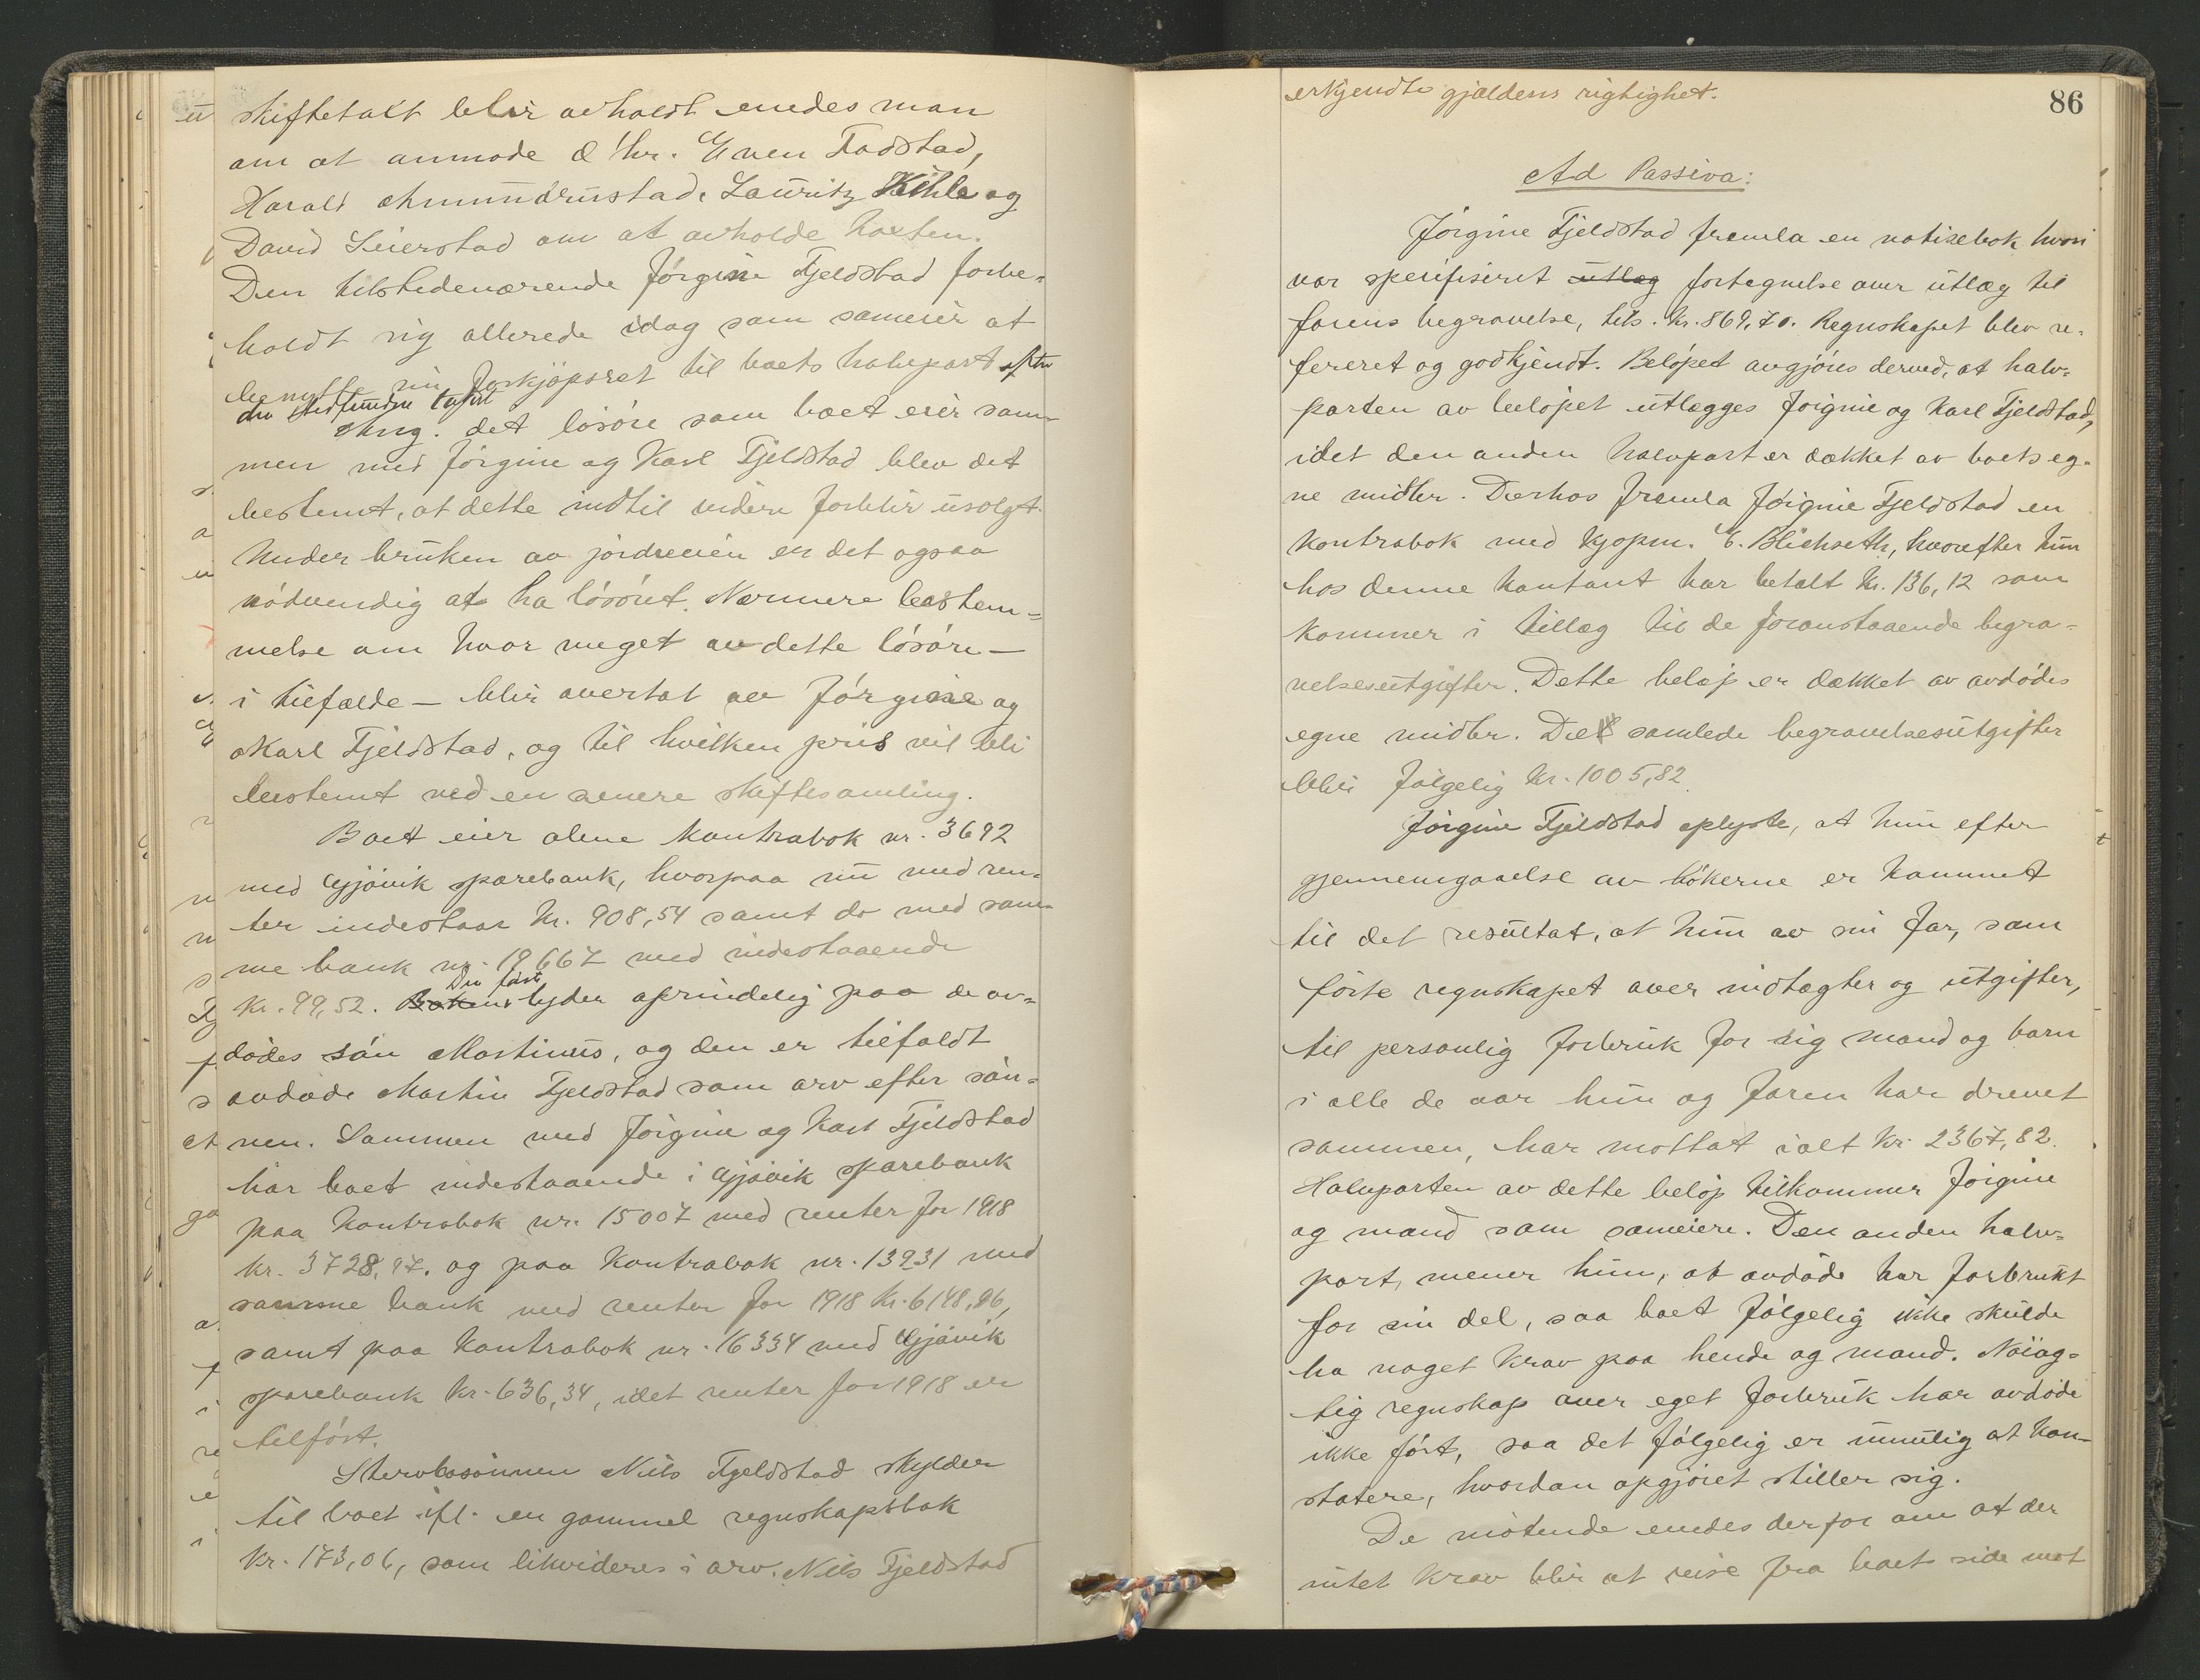 skiftetakt blir avholdt enedes man
om at anmode d'hr. Even Fodstad,
Harald Amundrustad, Lauritz Kihle og
David Seierstad om at avholde taxten.
Den tilstedeværende Jørgine Fjeldstad forbe-
holdt sig allerede idag som sameier at
benytte sin forkjøpsret til boets halvpart efter
den stedfundne taxt
Ang. det løsøre som boet eier sam-
men med Jørgine og Karl Fjeldstad blev det
bestemt, at dette indtil videre forblir usolgt.
Under bruken av jordveien er det ogsaa
nødvendig at ha løsøret. Nærmere bestem-
melse om hvor meget av dette løsøre —
i tilfælde — blir overtat av Jørgine og
Karl Fjeldstad, og til hvilken pris vil bli
bestemt ved en senere skiftesamling.
Boet eier alene kontrabok nr. 3692
med Gjøvik sparebank, hvorpaa nu med ren-
ter indestaar kr. 908,54 samt do med sam-
me bank nr. 19667 med indestaaende
Den først
kr. 99,52. Boken lyder oprindelig paa de av-
dødes søn Martinus, og den er tilfaldt
avdøde Martin Fjeldstad som arv efter søn-
nen. Sammen med Jørgine og Karl Fjeldstad
har boet indestaaende i Gjøvik sparebank
paa kontrabok nr. 15007 med renter for 1918
kr. 3728,97. og paa kontrabok nr. 13931 med
samme bank med renter for 1918 kr. 6148,86,
samt paa kontrabok nr. 16334 med Gjøvik
sparebank kr. 636,34, idet renter for 1918 er
tilført.
Stervbosønnen Nils Fjeldstad skylder
til boet ifl. en gammel regnskapsbok
kr. 173,06, som likvideres i arv. Nils Fjeldstad
erkjendte gjældens rigtighet.
86
Ad Passiva:
Jørgine Fjeldstad fremla en notisebok hvori
var spesifiseret utlæg fortegnelse over utlæg til
farens begravelse, tils. kr. 869,70. Regnskapet blev re-
fereret og godkjendt. Beløpet avgjøres derved, at halv-
parten av beløpet utlægges Jørgine og Karl Fjeldstad,
idet den anden halvpart er dækket av boets eg-
ne midler. Derhos fremla Jørgine Fjeldstad en
kontrabok med kjøpm. E. Blichseth, hvorefter hun
hos denne kontant har betalt kr. 136,12 som
kommer i tillæg til de foranstaaende begra-
velsesutgifter. Dette beløp er dækket av avdødes
egne midler. De samlede begravelsesutgifter
blir følgelig kr. 1005,82.
Jørgine Fjeldstad oplyste, at hun efter
gjennemgaaelse av bøkerne er kommet
til det resultat, at hun av sin far, som
førte regnskapet over indtægter og utgifter,
til personlig forbruk for sig mand og barn
i alle de aar hun og faren har drevet
sammen, har mottat ialt kr. 2367,82.
Halvparten av dette beløp tilkommer Jørgine
og mand som sameiere. Den anden halv-
part, mener hun, at avdøde har forbrukt
for sin del, saa boet følgelig ikke skulde
ha noget krav paa hende og mand. Nøiag-
tig regnskap over eget forbruk har avdøde
ikke ført, saa det følgelig er umulig at kon-
statere, hvordan opgjøret stiller sig.
De møtende enedes derfor om at der
intet krav blir at reise fra boets side mot